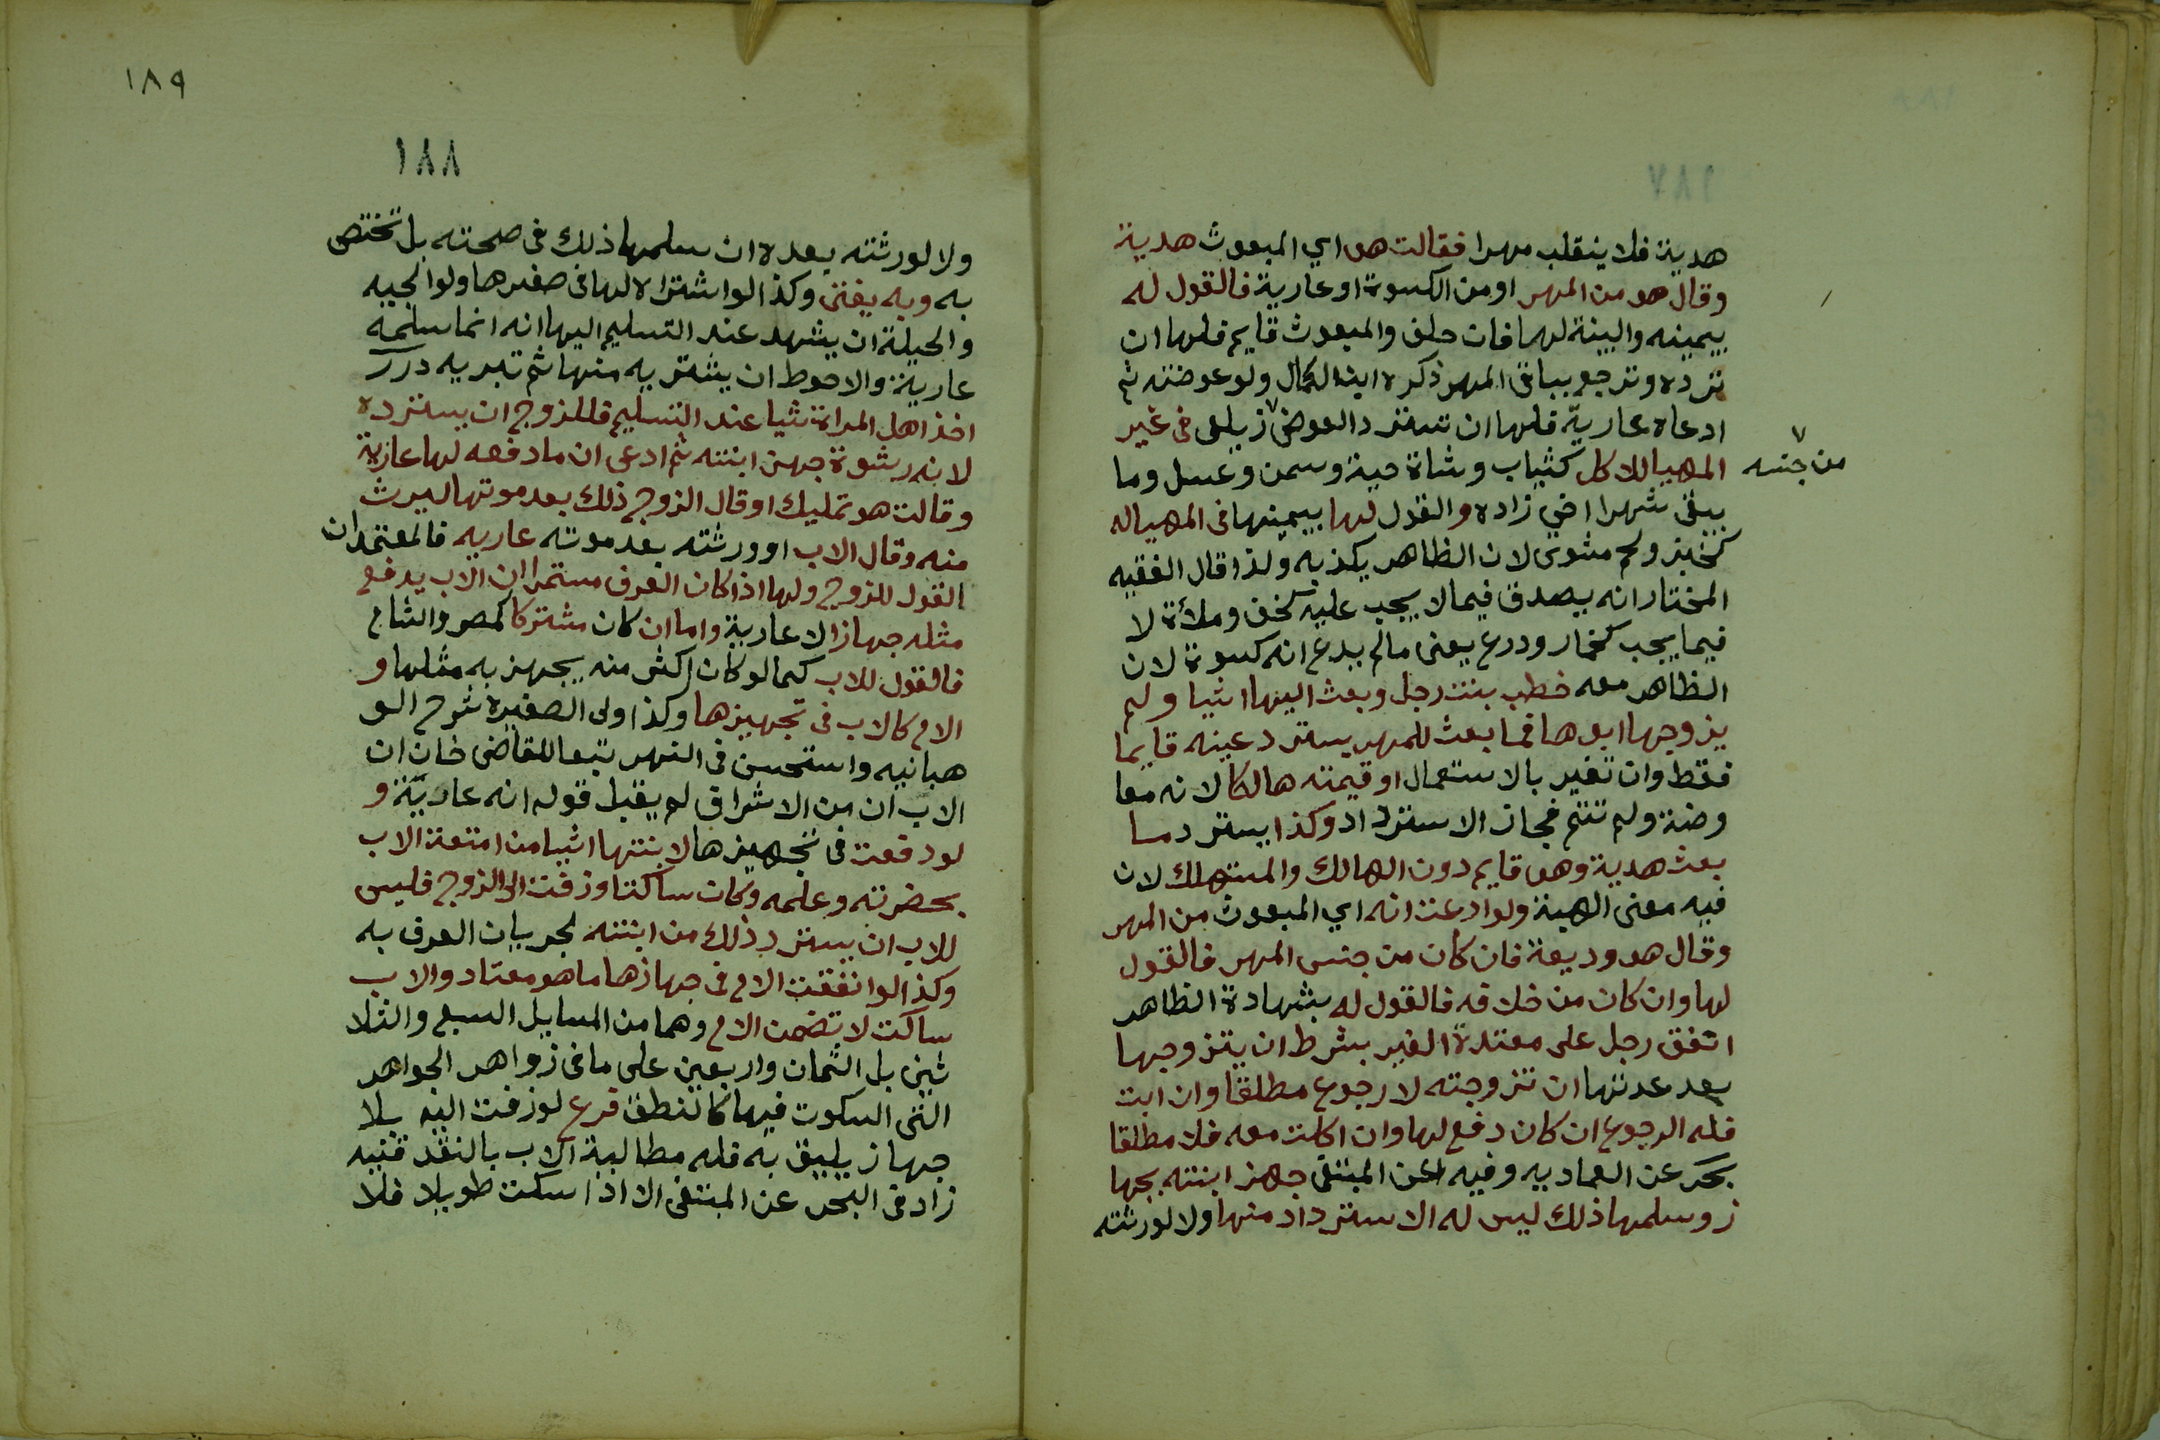 هدية فلا ينقلب مهرا فقالت هو اي المبعوث هدية
وقال هو من المهر او من الكسوة او عارية فالقول له
بيمينه والبينة لها فان حلف والمبعوث قايم فلها ان
ترده وترجع بباقي المهر ذكره ابن الكمال ولو عوضته ثم
ادعاه عارية فلها ان تسترد العوض زيلعي في غير
من جنسه
المهيا للاكل كثياب وشاة حية وسمن وعسل وما
يبقى شهرا اخي زاده والقول لها بيمينها في المهيا له
كخبز ولحم مشوى لان الظاهر يكذبه ولذا قال الفقيه
المختار انه يصدق فيما لا يجب عليه كخف وملأة لا
فيما يجب كخمار ودرع يعنى مالم يدع انه كسوة لان
الظاهر معه خطب بنت رجل وبعث اليها اشيا ولم
يزوجها ابوها فما بعث للمهر يسترد عينه قايما
فقط وان تغير بالاستعمال او قيمته هالكا لانه معا
وضة ولم تتم فجاز الاسترداد وكذا يسترد ما
بعث هدية وهو قايم دون الهالك والمستهلك لان
فيه معنى الهبة ولو ادعت انه اي المبعوث من المهر
وقال هو وديعة فان كان من جنس المهر فالقول
لها وان كان من خلافه فالقول له بشهادة الظاهر
انفق رجل على معتدة الغير بشرط ان يتزوجها
بعد عدتها ان تزوجته لا رجوع مطلقا وان ابت
فله الرجوع ان كان دفع لها وان اكلت معه فلا مطلقا
بحر عن العماديه وفيه عن المبتغى جهز ابنته بجها
ز وسلمها ذلك ليس له الاسترداد منها ولا لورثته
١٨٩
١٨٨
ولا لورثته بعده ان سلمها ذلك في صحته بل تختص
به وبه يفتى وكذا لو اشتراه لها في صغرها ولوالجيه
والحيلة ان يشهد عند التسليم اليها انه انما سلمه
عارية والاحوط ان يشتريه منها ثم تبريه درر
اخذ اهل المراة شيا عند التسليم فللزوج ان يسترده
لانه رشوة جهز ابنته ثم ادعى ان ما دفعه لها عارية
وقالت هو تمليك او قال الزوج ذلك بعد موتها ليرث
منه وقال الاب او ورثته بعد موته عاريه فالمعتمد ان
القول للزوج ولها اذا كان العرف مستمرا ان الاب يدفع
مثله جهازا لا عارية واما ان كان مشتركا كمصر والشام
فالقول للاب كما لو كان اكثر منه يجهز به مثلها و
الام كالاب في تجهيزها وكذا ولى الصغيرة شرح الو
هبانيه واستحسن في النهر تبعا للقاضى خان ان
الاب ان من الاشراف لم يقبل قوله انه عارية و
لو دفعت في تجهيزها لابنتها اشيا من امتعة الاب
بحضرته وعلمه وكان ساكتا وزفت الى الزوج فليس
للاب ان يسترد ذلك من ابنته لجريان العرف به
وكذا لو انفقت الام في جهازها ما هو معتاد والاب
ساكت لا تضمن الام وهما من المسايل السبع والثلا
ثين بل الثمان واربعين على ما في زواهر الجواهر
التى السكوت فيها كالنطق فرع لو زفت اليه بلا
جهاز يليق به فله مطالبة الاب بالنقد قنيه
زاد في البحر عن المبتغى الا اذا سكت طويلا فلا